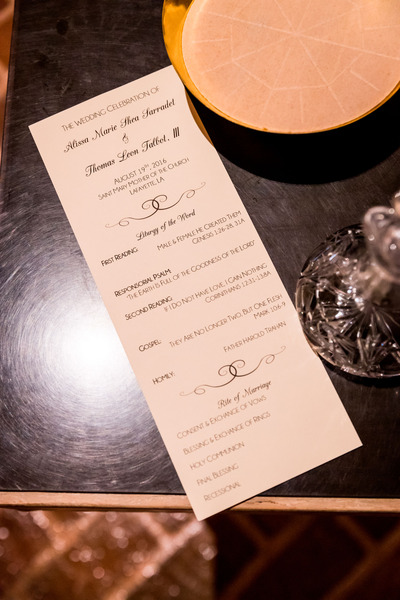 The Wedding Celebration of
Alissa Marie Shea Sarradet
&
Thomas Leon Talbot, III
August 19th, 2016
Saint Mary Mother of the Church
Lafayette, LA
Liturgy of the Word
First Reading: Male & Female He Created Them
Genesis 1:26-28, 31A
Responsorial Psalm:
"The Earth is Full of the Goodness of the Lord"
Second Reading: If I Do Not Have Love, I Gain Nothing
Corinthians 12:31-13:8A
Gospel: They Are No Longer Two, But One Flesh
Mark 10:6-9
Homily: Father Harold Trahan
Rite of Marriage
Consent & Exchange of Vows
Blessing & Exchange of Rings
Holy Communion
Final Blessing
Recessional